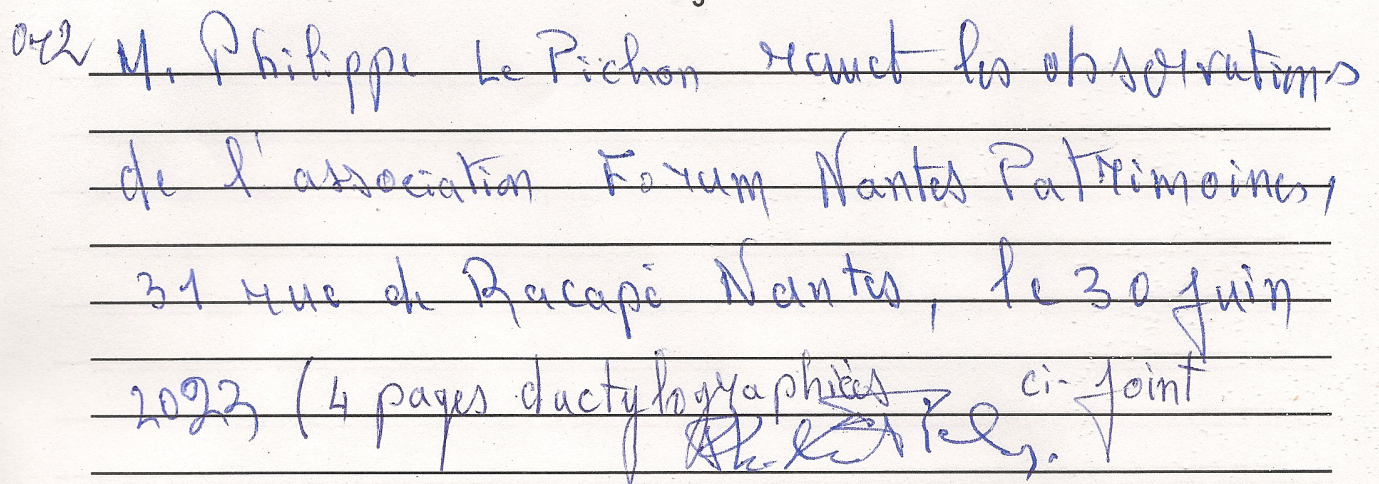 042 M. Philippe Le Pichon remet les observations
de l'association Forum Nantes Patrimoines,
31 rue de Racapé Nantes, le 30 juin
2023 (4 pages dactylographiées ci-joint